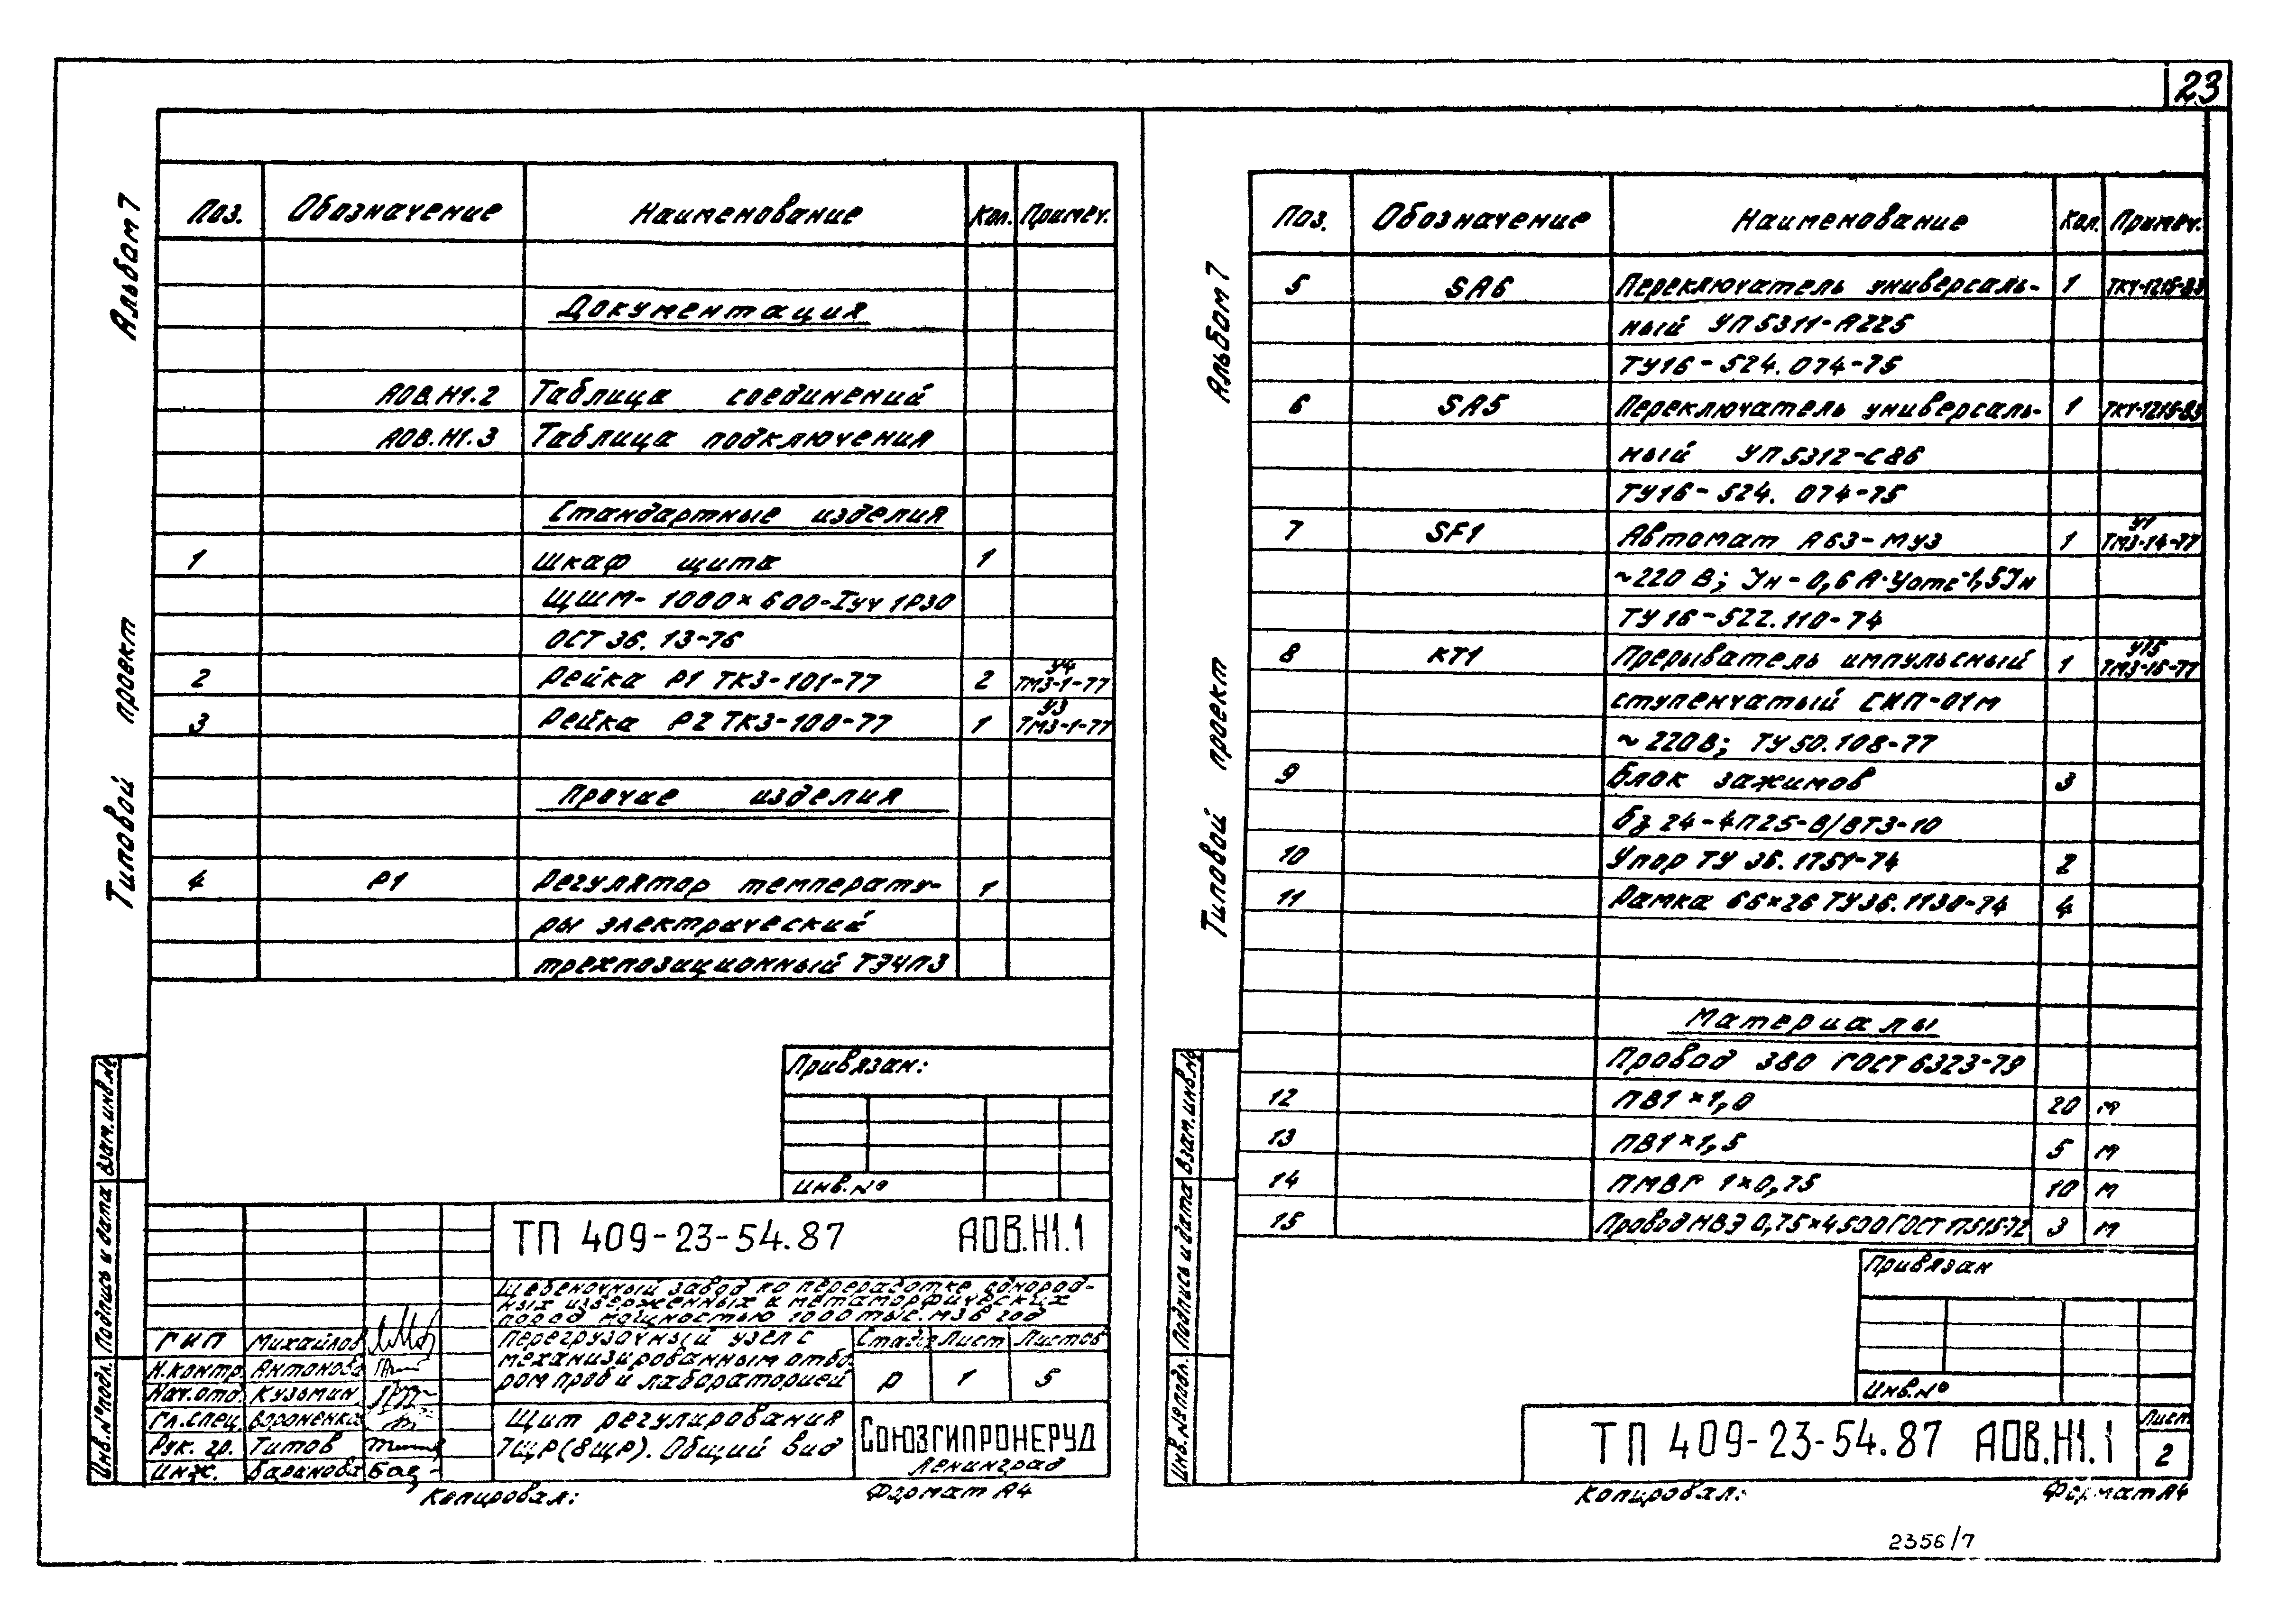 23
Альбом 7
Типовой проект
Поз. Обозначение Наименование Кол. Примеч.
Документация
АОВ.Н1.2 Таблица соединений
АОВ.Н1.3 Таблица подключения
Стандартные изделия
1 Шкаф щита 1
ЩШМ-1000×600-Iуч 1Р30
ОСТ 36.13-76
2 Рейка Р1 ТК3-101-77 2 У4 ТМ3-1-77
3 Рейка Р2 ТК3-100-77 1 У3 ТМ3-1-77
Прочие изделия
4 Р1 Регулятор температу- 1
ры электрический
трехпозиционный ТЭ4П3
Привязан:
Инв.№
ТП 409-23-54.87 АОВ.Н1.1
Щебеночный завод по переработке однород-
ных изверженных и метаморфических
пород мощностью 1000 тыс.м3 в год
Перегрузочный узел с
механизированным отбо
ром проб и лабораторией
Стадия Лист Листов
Р 1 5
Щит регулирования
ТЩР(8ЩР). Общий вид
Союзгипронеруд
Ленинград
ГИП Михайлов
Н.контр. Антонова
Нач.отд. Кузьмин
Гл.спец. Вороненко
Рук. гр. Титов
Инж. Баринова
Взам.инв.№
Подпись и дата
Инв.№подл.
Копировал:
Формат А4
Альбом 7
Типовой проект
Поз. Обозначение Наименование Кол. Примеч.
5 SA6 Переключатель универсаль- 1 ТК4-1215-83
ный УП5311-А225
ТУ16-524.074-75
6 SA5 Переключатель универсаль- 1 ТК4-1215-83
ный УП5312-С86
ТУ16-524.074-75
7 SF1 Автомат А63-МУ3 1 У1 ТМ3-14-77
~220 В; Iн-0,6 А·Yотс-1,5Iн
ТУ16-522.110-74
8 КТ1 Прерыватель импульсный 1 У15 ТМ3-16-77
ступенчатый СИП-01м
~220В; ТУ50.108-77
9 Блок зажимов 3
Бз 24-4П25-В/ВТЗ-10
10 Упор ТУ 36.1751-74 2
11 Рамка 66×26 ТУ36.1130-74 4
Материалы
Провод 380 ГОСТ 6323-79
12 ПВ1×1,0 20 м
13 ПВ1×1,5 5 м
14 ПМВГ 1×0,75 10 м
15 Провод НВЭ 0,75×4 500 ГОСТ 17515-72 3 м
Привязан
Инв.№
ТП 409-23-54.87 АОВ.Н1.1
Лист
2
Взам.инв.№
Подпись и дата
Инв.№подл.
Копировал:
Формат А4
2356/7